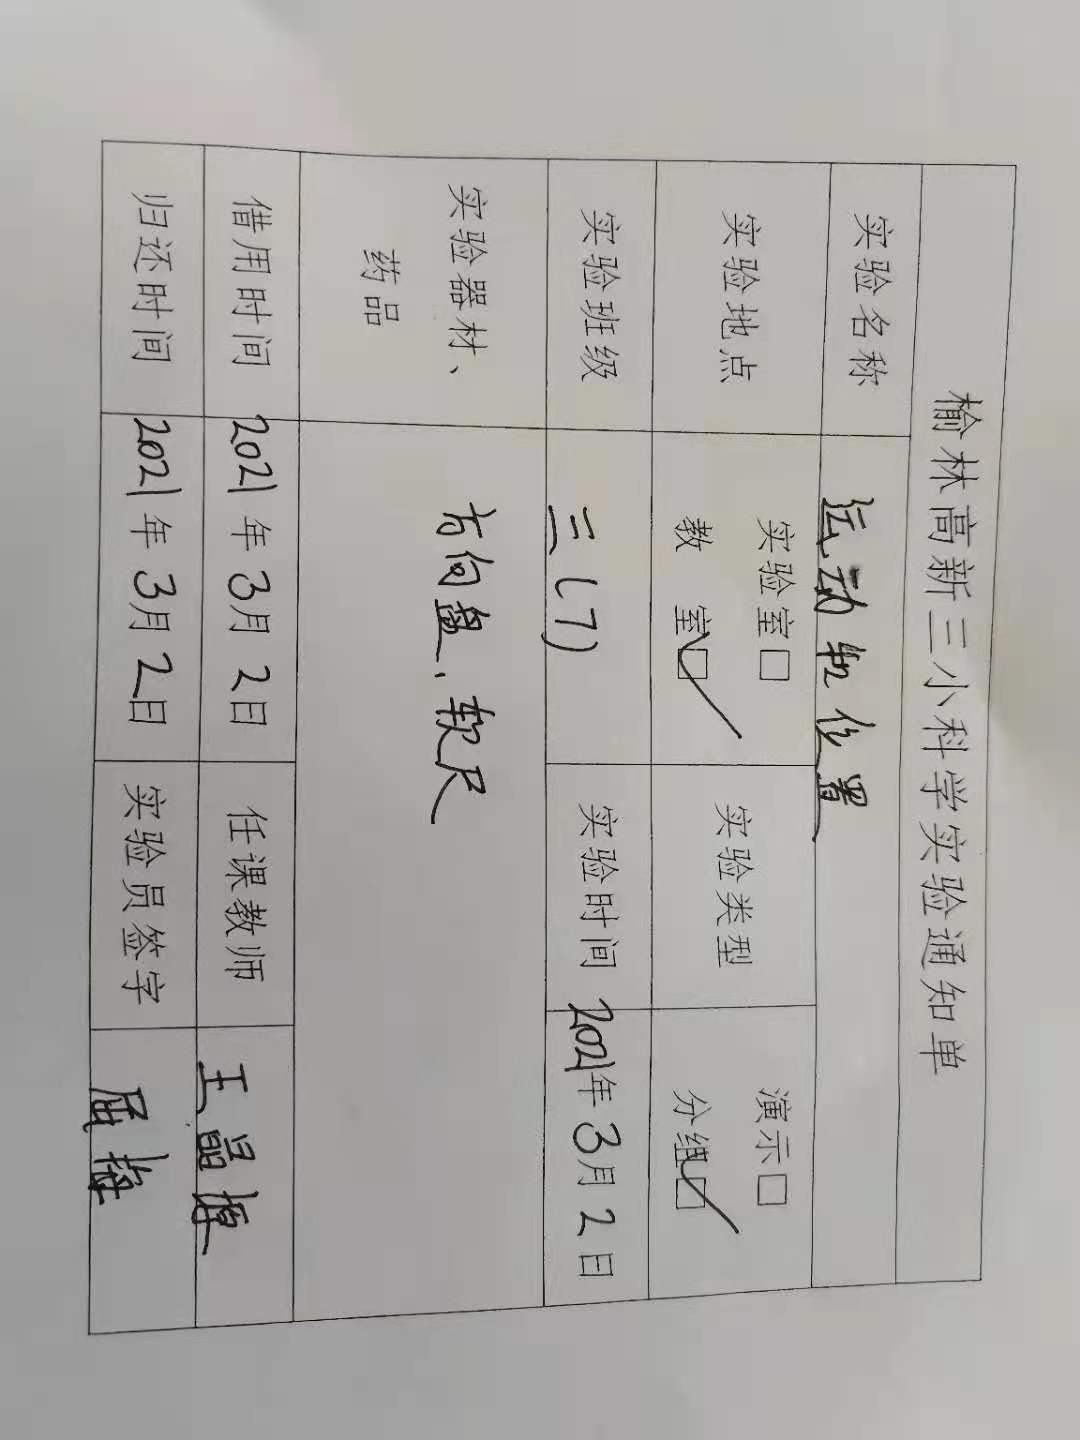 榆林高新三小科学实验通知单
实验名称 运动和位置
实验地点 实验室□ 教 室□✓ 实验类型 演示□ 分组□✓
实验班级 三(7) 实验时间 2021年3月2日
实验器材、药品 方向盘、软尺
借用时间 2021年3月2日 任课教师 王晶
归还时间 2021年3月2日 实验员签字 屈梅